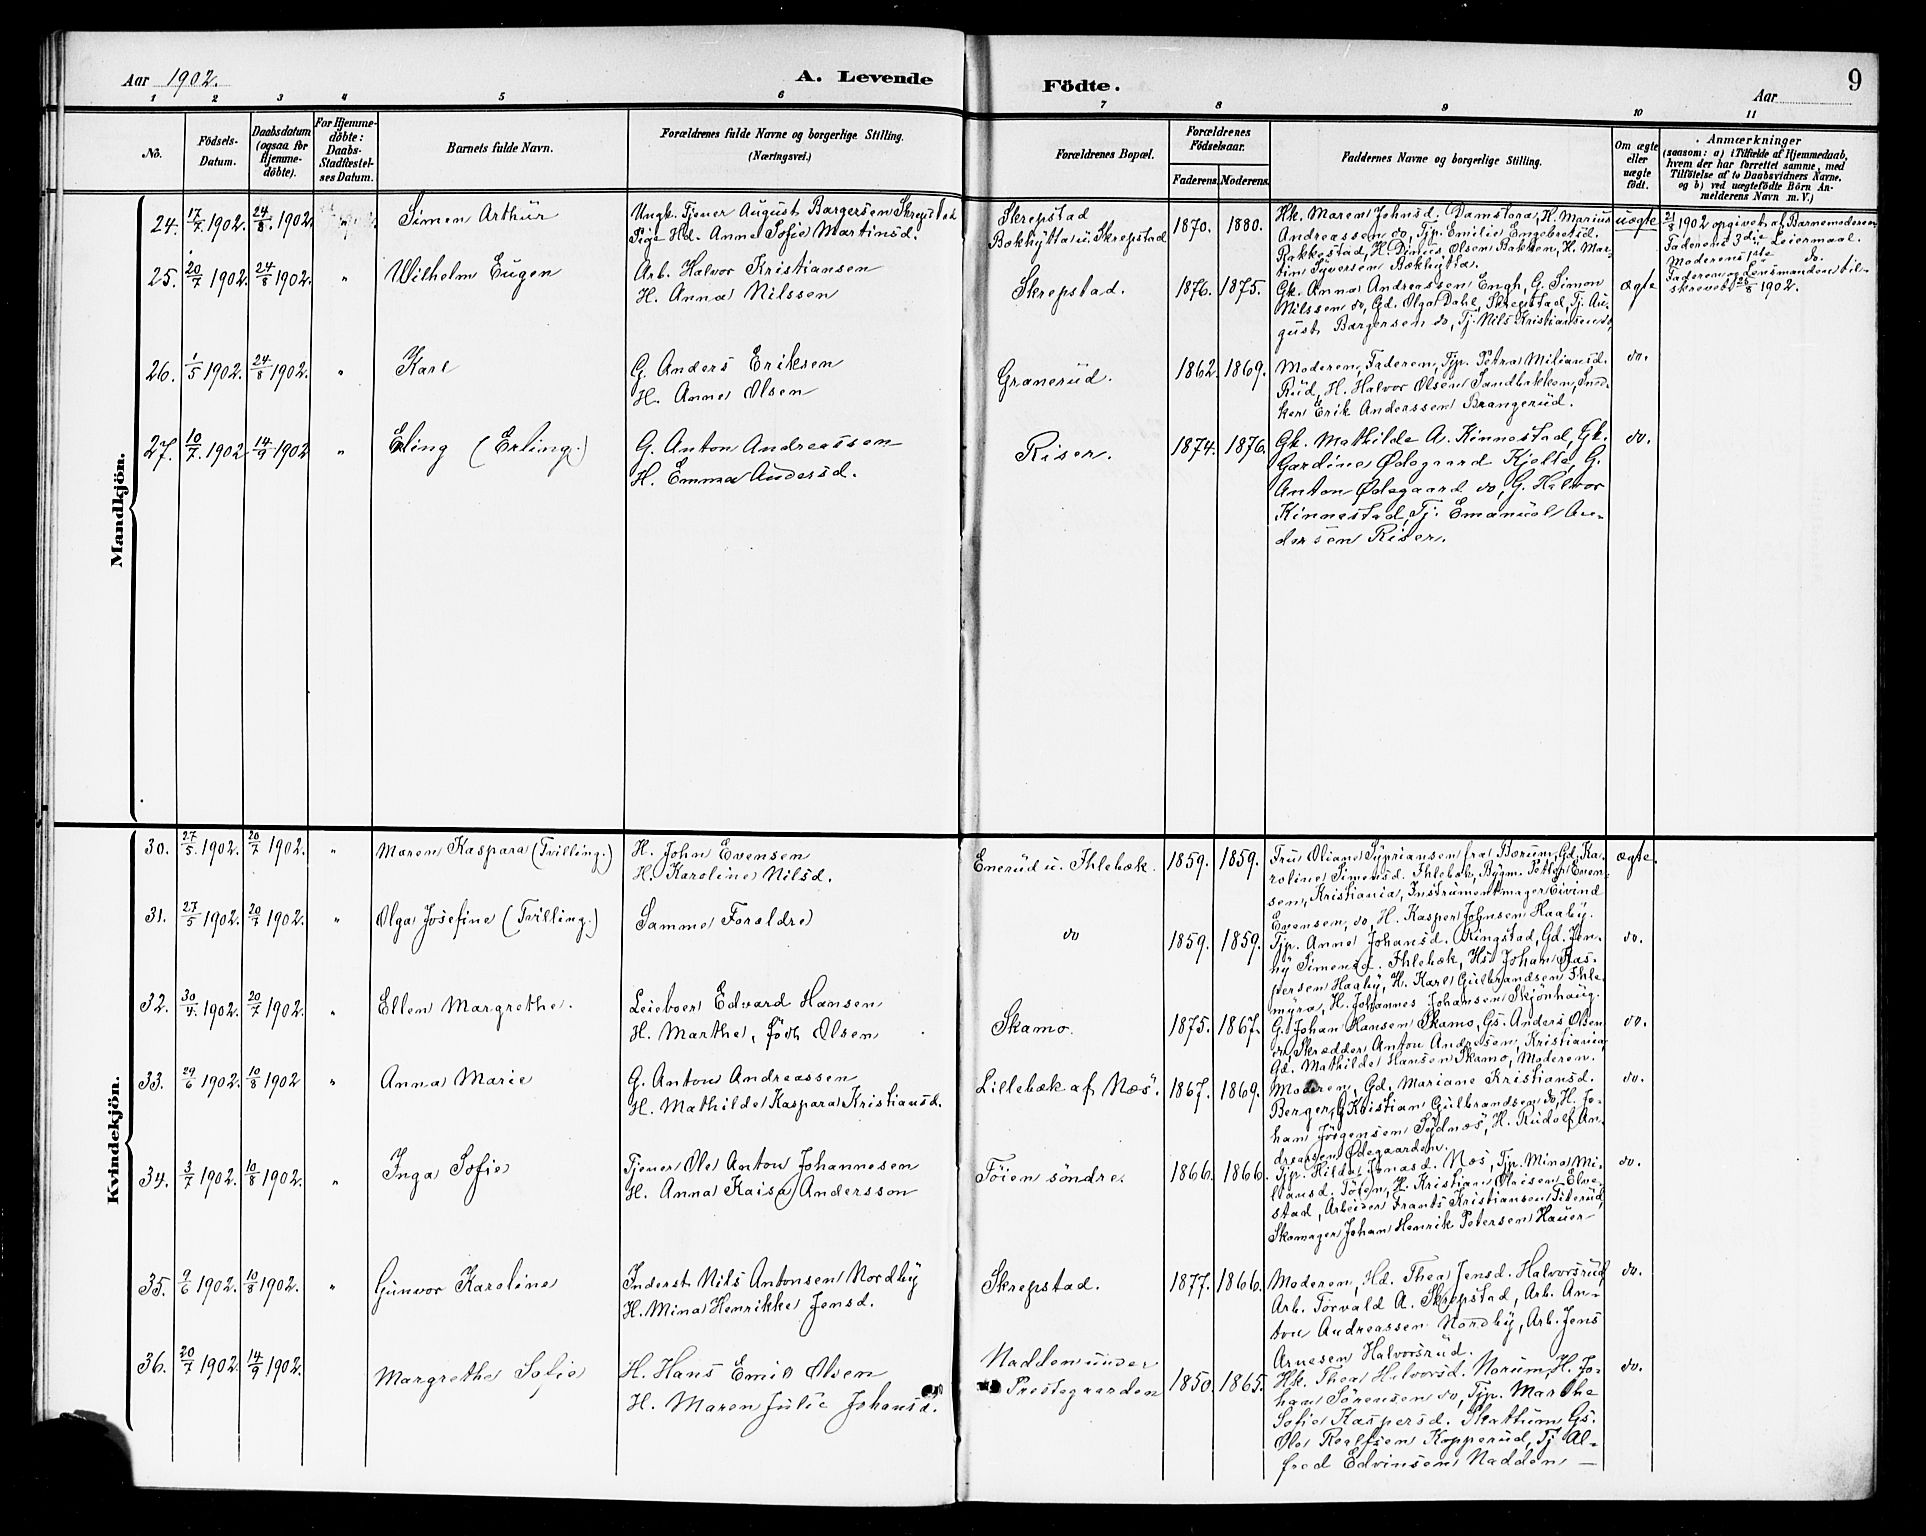 Aar 1902.
A. Levende
Födte.
9
Aar
1 2 3 4 5 6 7 8 9 10 11
No.
Födsels-
Datum.
Daabsdatum
(ogsaa for
Hjemme-
döbte).
For Hjemme-
döbte:
Daabs-
Stadfæstel-
ses Datum.
Barnets fulde Navn.
Forældrenes fulde Navne og borgerlige Stilling.
(Næringsvei.)
Forældrenes Bopæl.
Forældrenes
Födselsaar.
Faderens. Moderens.
Faddernes Navne og borgerlige Stilling.
Om ægte
eller
uægte
födt.
Anmærkninger
(saasom: a) i Tilfælde af Hjemmedaab,
hvem der har forrettet samme, med
Tilföielse af to Daabsvidners Navne,
og b) ved uægtefödte Börn An-
melderens Navn m. V.)
Mandkjön.
24. 17/7 1902. 24/8 1902. "
Simen Arthur
Ungk. Tjener August Borgersen Skrepstad
Pige Hd. Anne Sofie Martinsd.
Skrepstad
Bækhytta u. Skrepstad
1870. 1880.
Hk. Maren Johnsd. Damstora, H. Marius
Andreassen do, Tjp. Emilie Engebretsd.
Rakkestad, H. Olsen Bakken, H. Mar-
tin Syversen Bækhytta.
uægte
21/8 1902 opgivet af Barnemoderen
Faderens 3die Leiermaal.
Moderens 1ste do.
Faderen og Lensmanden til-
skrevet 26/8 1902.
25. 20/7 1902. 24/8 1902. "
Wilhelm Eugen
Arb. Halvor Kristiansen
H. Anna Nilssen
Skrepstad.
1876. 1875.
Gk. Anna Andreassen Engh, G. Simon
Nilssen do, Gd. Olga Dahl, Skrepstad, Tj. Au-
gust Borgersen do, Tj. Nils Kristiansen do,
ægte
26. 1/5 1902. 24/8 1902. "
Karl
G. Anders Eriksen
H. Anne Olsen
Granerud.
1862. 1869.
Moderen, Faderen, Tjp. Petra Miliansd.
Rud, H. Halvor Olsen Sandbakken, Sned-
ker Erik Anderssen Brangerud.
do.
27. 10/7. 1902. 14/9 1902 "
Erling (Erling.)
G. Anton Andreassen
H. Emma Andersd.
Riser.
1874. 1876.
Gk. Mathilde A. Kinnestad, Gk.
Gardine Ødegaard Kjelle, G.
Anton Ødegaard do, G. Halvor
Kinnestad, Tj. Emanuel An-
dersen Riser.
do.
Kvindekjön.
30. 27/5. 1902. 20/7 1902. "
Maren Kaspara (Tvilling.)
H. John Evensen
H. Karoline Nilsd.
Enerud u. Ihlebæk.
1859. 1859.
Fru Oliane Sypriansen fra Bærum, Gd. Ka-
roline Simensd. Ihlebæk, Bygm. Petter Even-
sen, Kristiania, Instrumentmager Eivind
Evensen, do, H. Kasper Johnsen Haaby.
ægte.
31. 27/5 1902. 20/7 1902. "
Olga Josefine (Tvilling.)
Samme Forældre
do
1859. 1859.
Tjp. Anne Johansd. Ringstad, Gd. Jen-
ny Simensd. Ihlebæk, Hs. Johan Kas-
persen Haaby, H. Karl Gulbrandsen Ihle-
myra, H. Johannes Johansen Skjönhaug.
do.
32. 30/4 1902. 20/7 1902. "
Ellen Margrethe.
Leieboer Edvard Hansen
H. Marthe, Födt Olsen
Skamo.
1875. 1867.
G. Johan Hansen Skamo, Gs. Anders Olsen
do, Skrædder Anton Andresen, Kristiania,
Gd. Mathilde Hansen Skamo, Moderen.
do.
33. 29/6 1902. 10/8 1902 "
Anna Marie
G. Anton Andreassen
H. Mathilde Kaspara Kristiansd.
Lillebæk af Næs.
1867. 1869.
Moderen, Gd. Mariane Kristiansd.
Berger, G. Kristian Gulbrandsen do, H. Jo-
han Jörgensen Sydnæs, H. Rudolf An-
dreasen Ødegaarden.
do.
34. 3/7 1902. 10/8 1902. "
Inga Sofie
Tjener Ole Anton Johannesen
H. Anna Kaisa Andersson
Föien söndre.
1866. 1866.
Tjp. Hilda Jonasd. Næs, Tjp. Mina Mi-
liansd. Föien, H. Kristian Olsen Elne-
stad, Arbeider Frants Kristiansen Fiterud,
Skomager Johan Henrik Petersen Hauer
do.
35. 9/6 1902. 10/8 1902. "
Gunvor Karoline
Inderst Nils Antonsen Nordby
H. Mina Henrikke Jensd.
Skrepstad.
1877. 1866.
Moderen, Hd. Thea Jensd. Halvorsrud,
Arb. Torvald A. Skrepstad, Arb. An-
ton Andreassen Nordby, Arb. Jens
Arnesen Halvorsrud.
do.
36. 20/7 1902. 14/9 1902.
Margrethe Sofie
H. Hans Emil Olsen
H. Maren Julie Johansd.
Nadden under
Prestegaarden
1850. 1865.
Hk. Thea Halvorsd. Norum, H. Jo-
han Sörensen do, Tjp. Marthe
Sofie Kaspersd. Skattum, Gs.
Ole Kopperud, Tj. Al-
fred Edvinsen Nadden —
do.